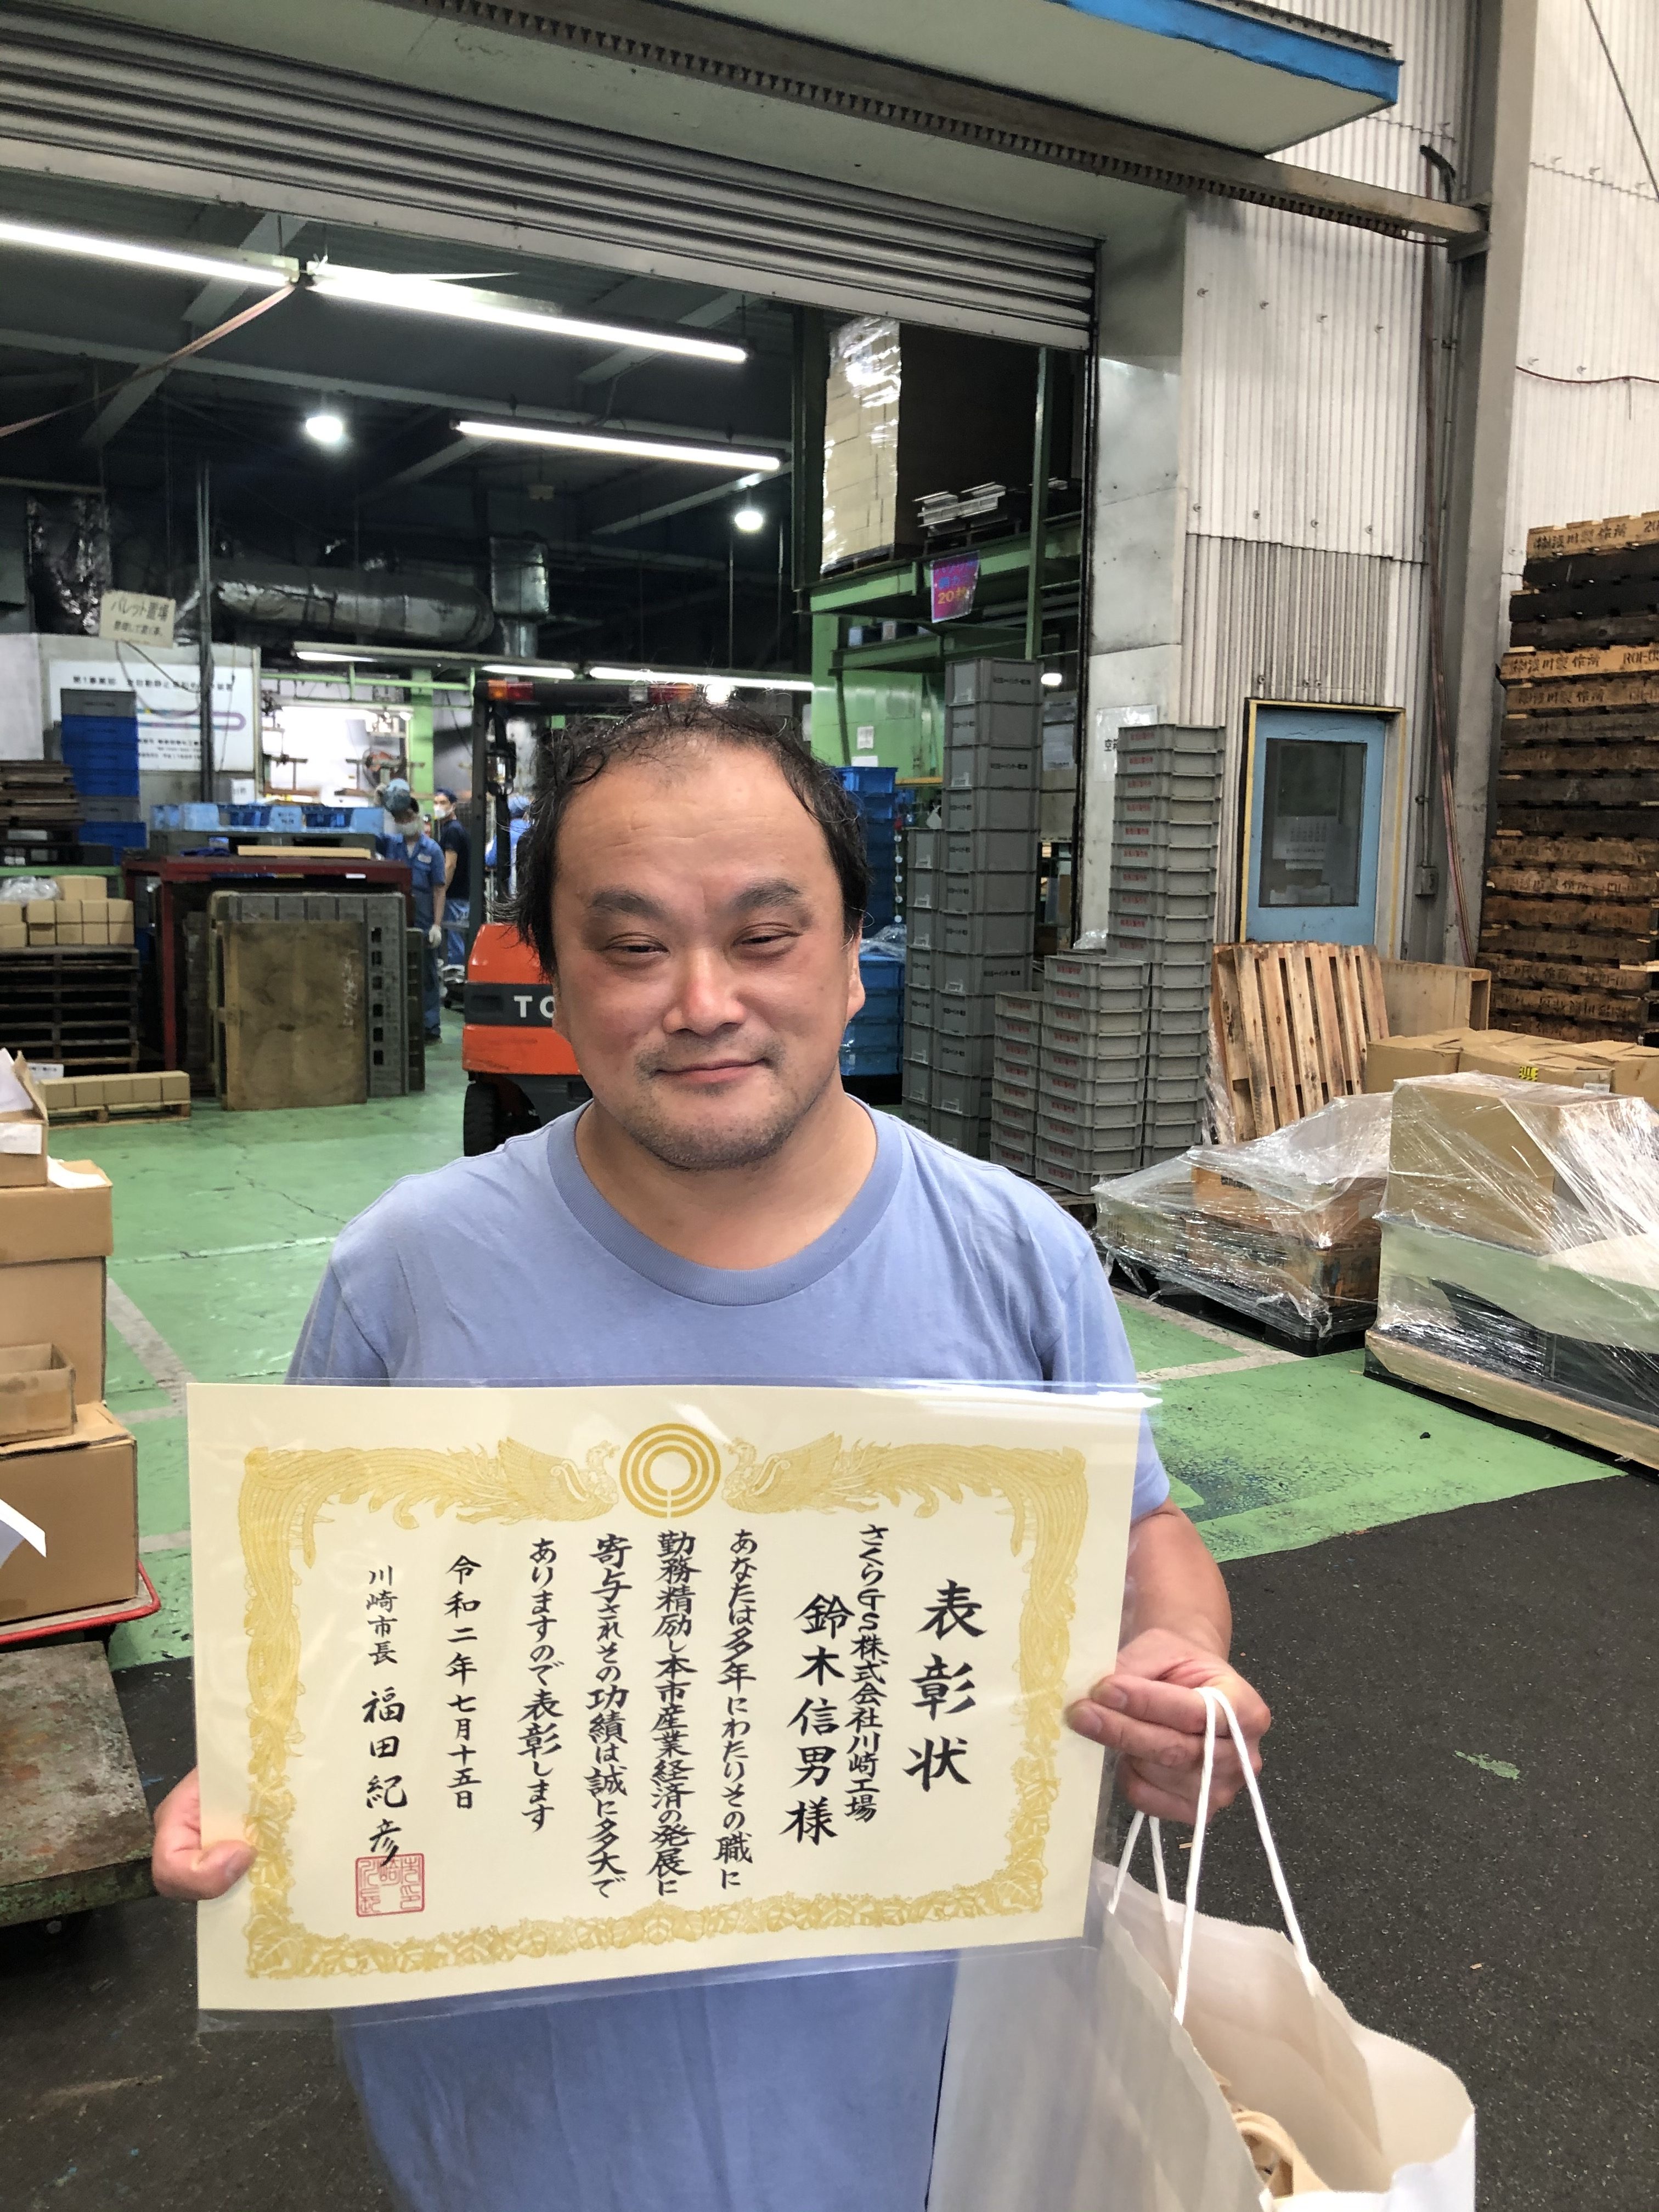 表彰状
さくらGS株式会社川崎工場
鈴木信男様
あなたは多年にわたりその職に
勤務精励し本市産業経済の発展に
寄与されその功績は誠に多大で
ありますので表彰します
令和二年七月十五日
川崎市長 福田紀彦
パレット置場
TO